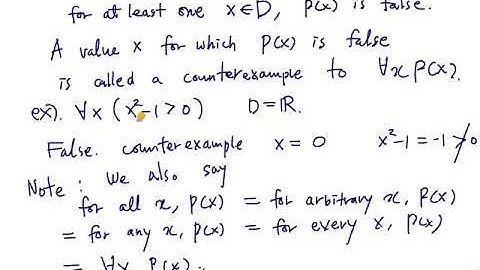 for at least one x∈D, P(x) is false.
A value x for which P(x) is false
is called a counterexample to ∀x P(x).
ex). ∀x (x²-1>0) D=ℝ.
False. counterexample x=0 x²-1=-1≯0
Note: We also say
for all x, P(x) = for arbitrary x, P(x)
= for any x, P(x) = for every x, P(x)
= ∀x P(x).